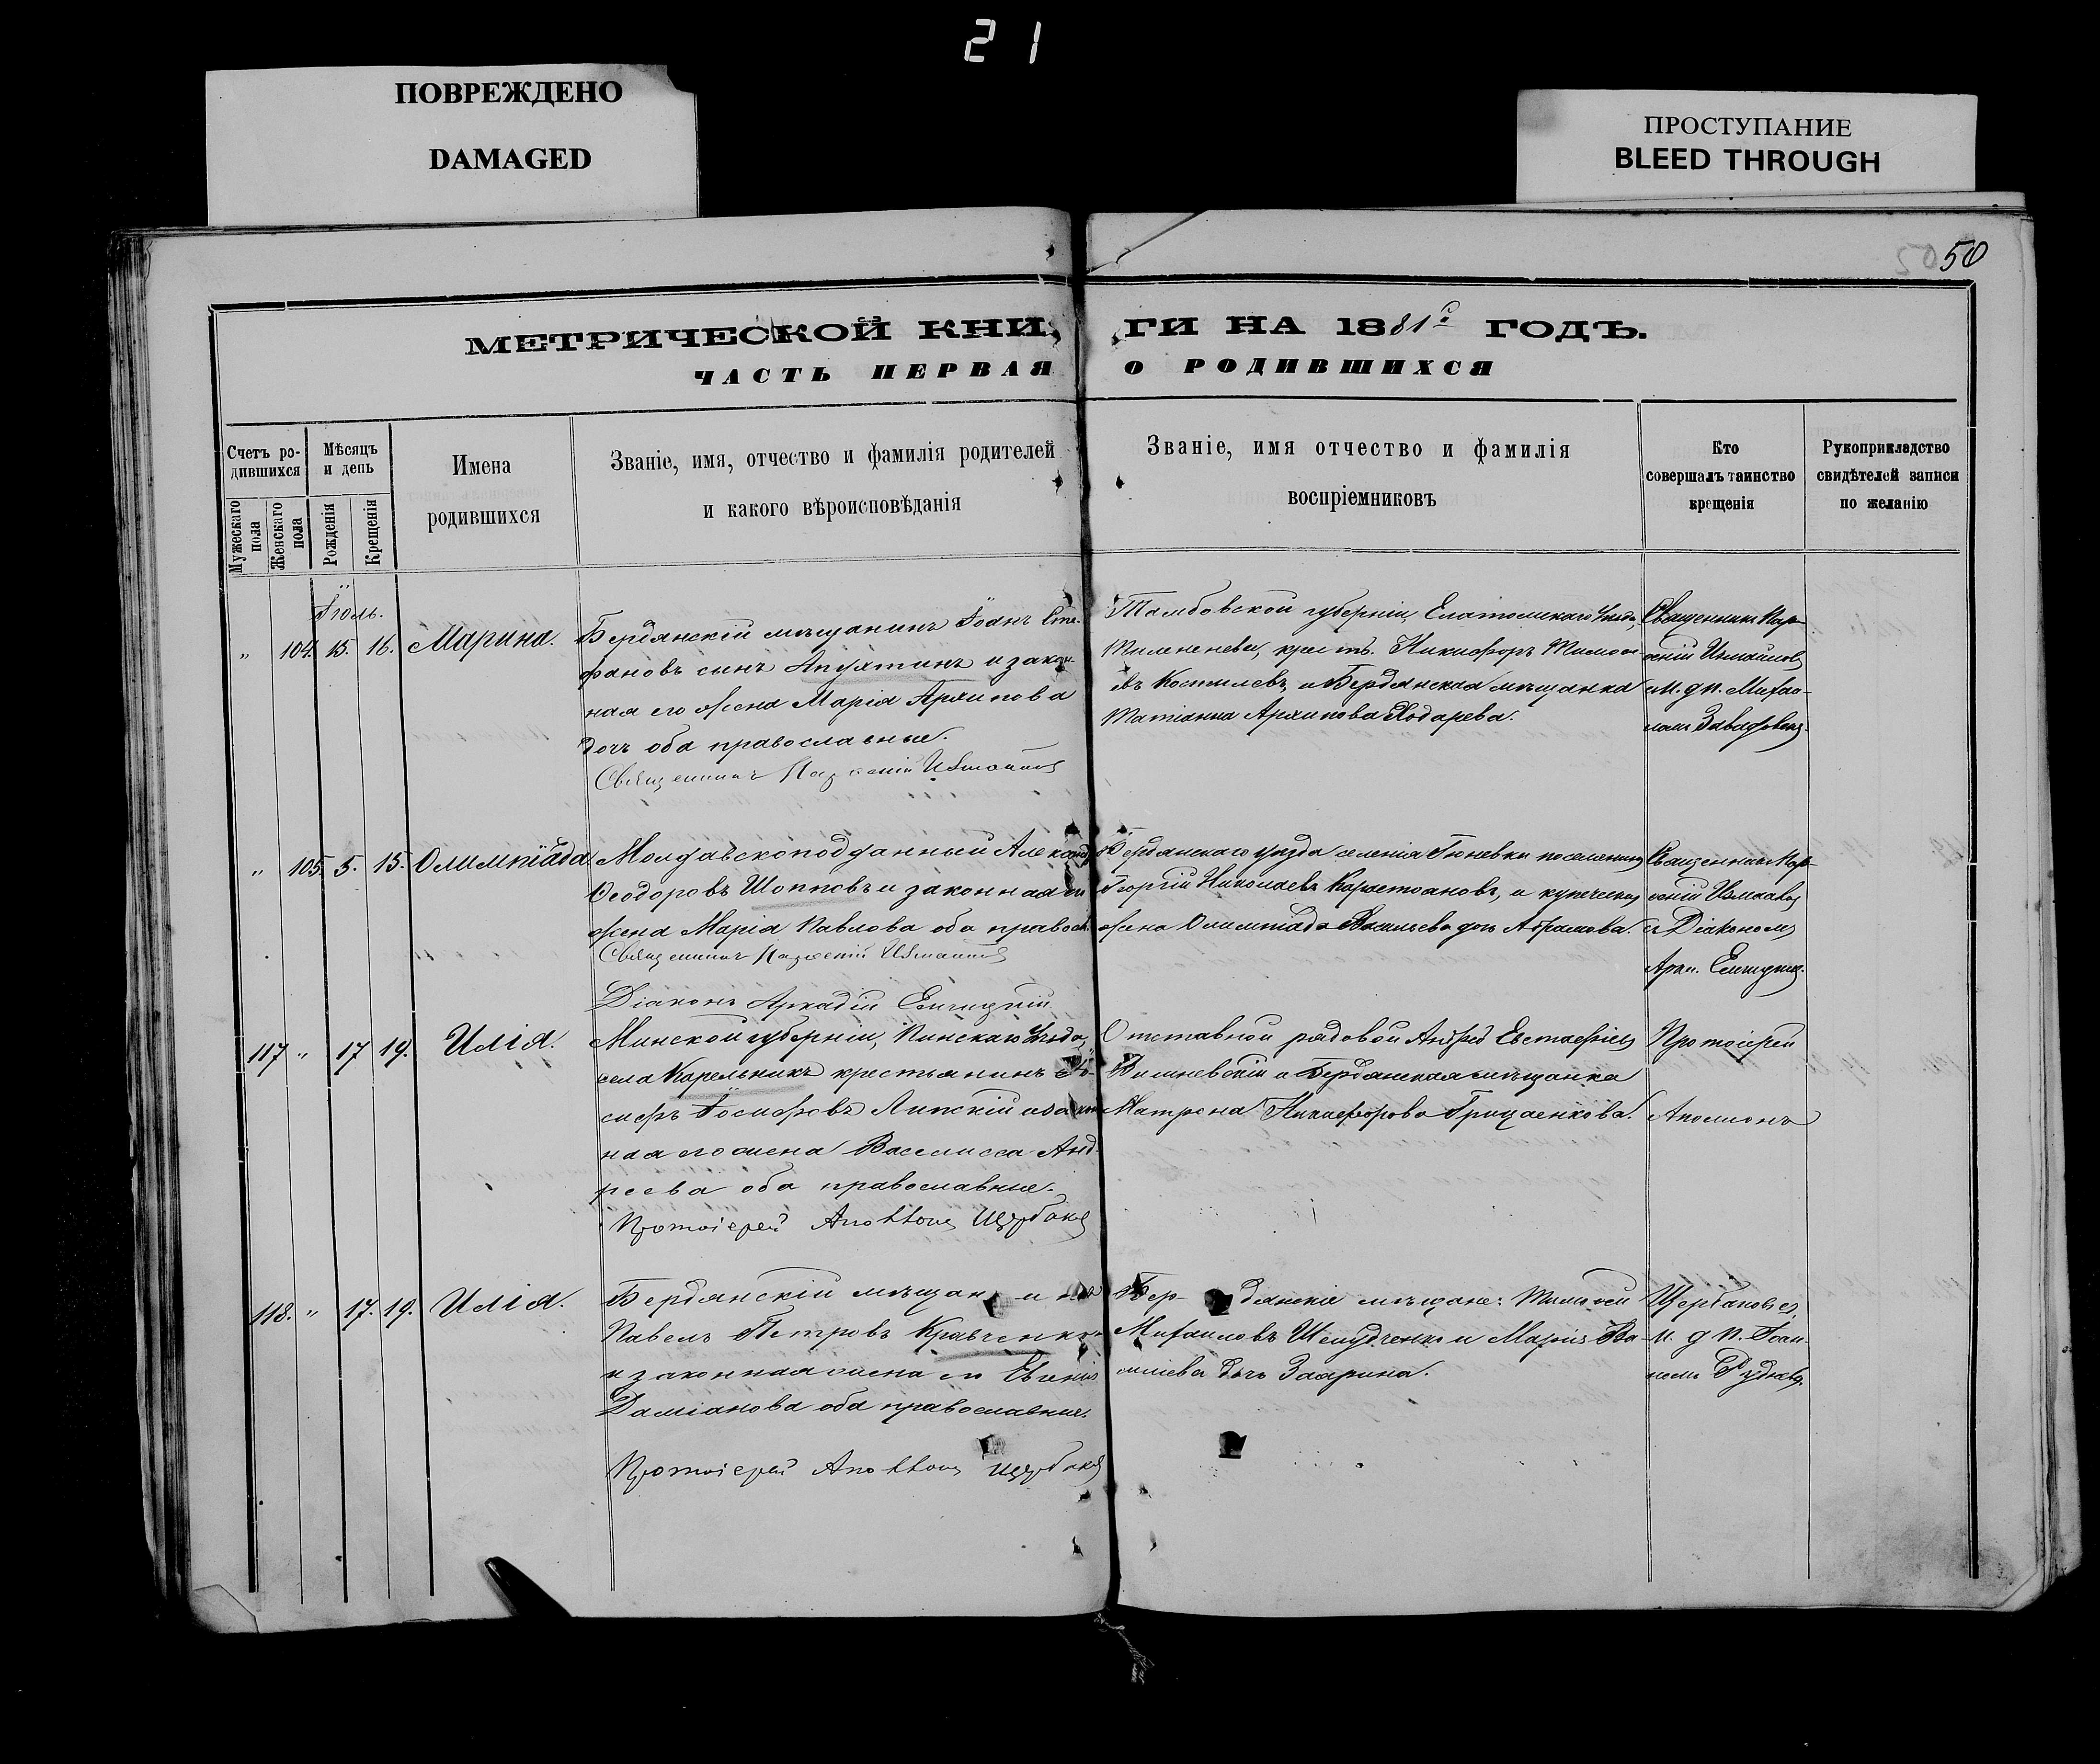 21
ПОВРЕЖДЕНО
DAMAGED
ПРОСТУПАНИЕ
BLEED THROUGH
50
МЕТРИЧЕСКОЙ КНИ, ГИ НА 1881 ГОДЪ.
ЧАСТЬ ПЕРВАЯ О РОДИВШИХСЯ
Счетъ ро-
дившихся
Мѣсяцъ
и день
Мужескаго
пола
Женскаго
пола
Рожденія
Крещенія
Имена
родившихся
Званіе, имя, отчество и фамилія родителей
и какого вѣроисповѣданія
Званіе, имя отчество и фамилія
воспріемниковъ
Кто
совершалъ таинство
крещенія
Рукоприкладство
свидѣтелей записи
по желанію
Іюль.
„ 104. 15. 16. Марина.
Бердянскій мѣщанинъ Іоанъ Сте-
фановъ сынъ Апухтинъ и закон-
ная его жена Марія Архипова
дочь оба православные.
Священникъ Парѳеній Измаиловъ
Тамбовской губерніи, Елатомскаго Уѣзда,
крест. Никифоръ Тимоѳе-
евъ Костылевъ, и Бердянская мѣщанка
Татіанна Архипова Ходарева.
Священникъ Пар-
ѳеній Измаиловъ
и. д. п. Михаи-
ломъ
„ 105. 5. 15. Олимпіада
Молдавскоподданный Александръ
Ѳеодоровъ Шоповъ и законная его
жена Марія Павлова оба правосл.
Священникъ Парѳеній Измаиловъ
Діаконъ Аркадій
Бердянскаго уѣзда селенія Гюневки поселянинъ
Георгій Николаевъ Карастояновъ, и купеческая
жена Олимпіада Васильева дочь Абрамова.
Священникъ Пар-
ѳеній Измаиловъ
съ Діакономъ
Арк.
117 „ 17 19. Илія.
Минской губерніи, Пинскаго Уѣзда,
села крестьянинъ Іо-
сифъ Іосифовъ Липскій и закон-
ная его жена Василисса Анд-
реева оба православные.
Протоіерей Аполлонъ Щербаковъ
Отставной рядовой Андрей Евстафіевъ
Вишневскій и Бердянская мѣщанка
Матрона Никифорова Грицаенкова.
Протоіерей
Аполлонъ
118. „ 17. 19. Илія.
Бердянскій мѣщанинъ
Павелъ Петровъ Кравченко
и законная жена его Евгенія
Даміанова оба православные.
Протоіерей Аполлонъ Щербаковъ
Бер- дянскіе мѣщане: Тимоѳей
Михаиловъ и Марія Ва-
силіева дочь
Щербаковъ съ
и. д. п. Іоан-
номъ